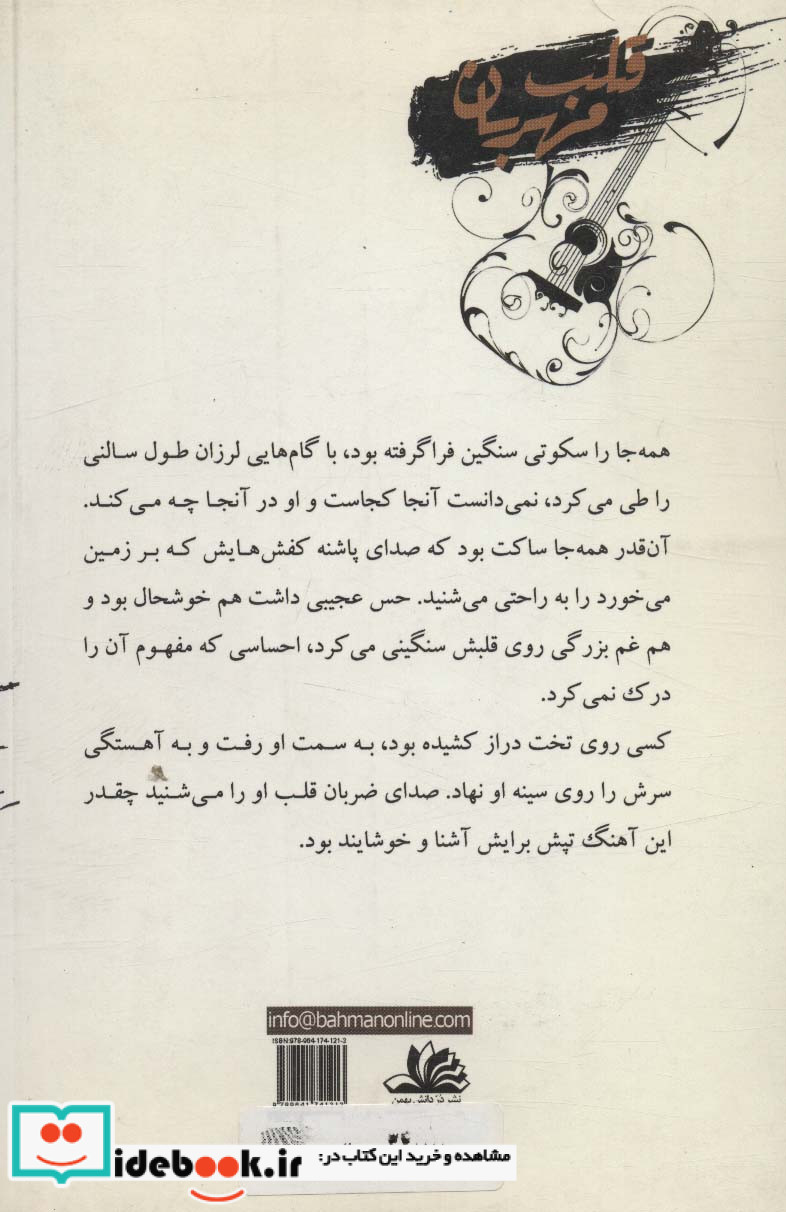 قلب
مهربان
همه‌جا را سکوتی سنگین فراگرفته بود، با گام‌هایی لرزان طول سالنی
را طی می‌کرد، نمی‌دانست آنجا کجاست و او در آنجا چه می‌کند.
آن‌قدر همه‌جا ساکت بود که صدای پاشنه کفش‌هایش که بر زمین
می‌خورد را به راحتی می‌شنید. حس عجیبی داشت هم خوشحال بود و
هم غم بزرگی روی قلبش سنگینی می‌کرد، احساسی که مفهوم آن را
درک نمی‌کرد.
کسی روی تخت دراز کشیده بود، به سمت او رفت و به آهستگی
سرش را روی سینه او نهاد. صدای ضربان قلب او را می‌شنید چقدر
این آهنگ تپش برایش آشنا و خوشایند بود.
info@bahmanonline.com
ISBN:978-964-174-121-3
نشر دُر دانش بهمن
9 789641 741213
مشاهده و خرید این کتاب در:
idebook.ir